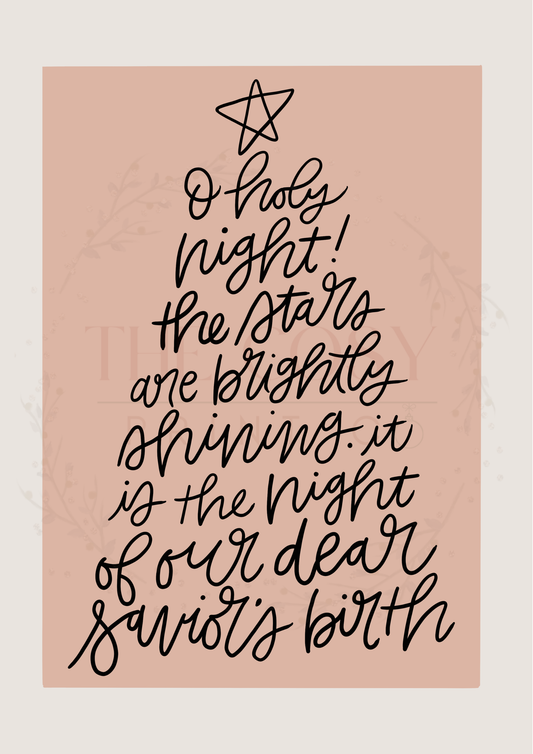 O holy
night!
the stars
are brightly
shining. it
is the night
of our dear
savior's birth
THE COSY